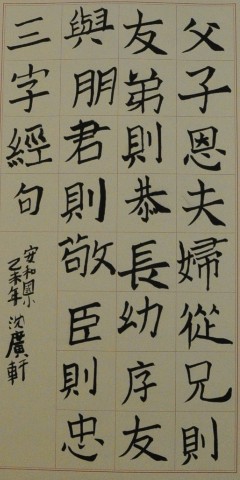 父子恩夫婦從兄則
友弟則恭長幼序友
與朋君則敬臣則忠
三字經句
安和
乙未年 沈廣軒